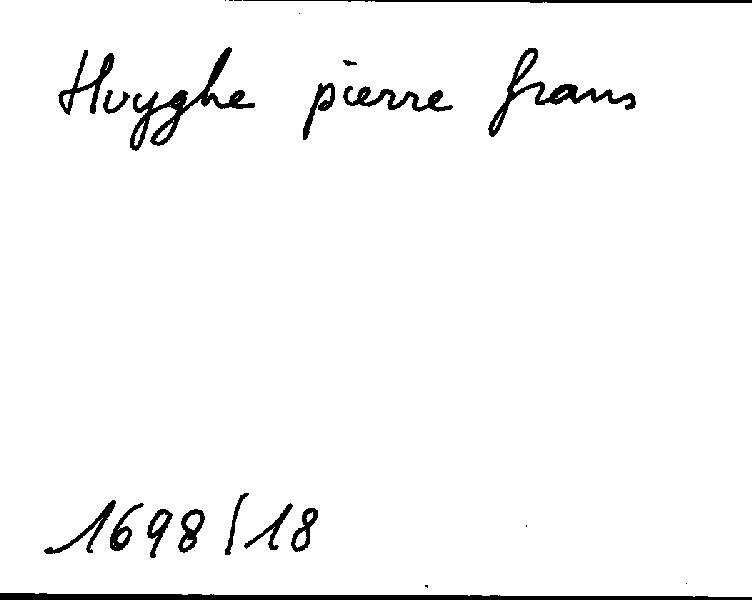 Huyghe pierre frans
1698/18